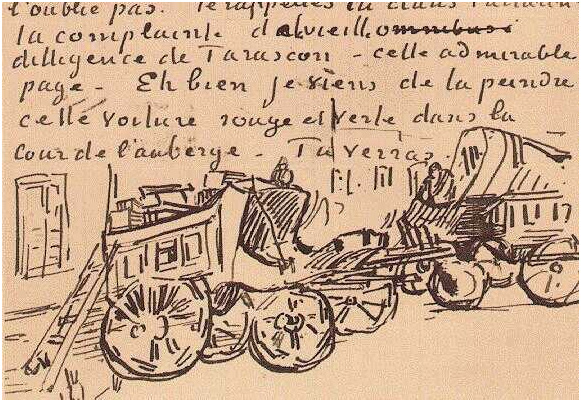 l'oublie pas. Te rappelles tu dans Tartarin
la complainte de la vieille omnibus
dilligence de Tarascon – cette admirable
page – Eh bien je viens de la peindre
cette voiture rouge et verte dans la
cour de l'auberge – Tu verras